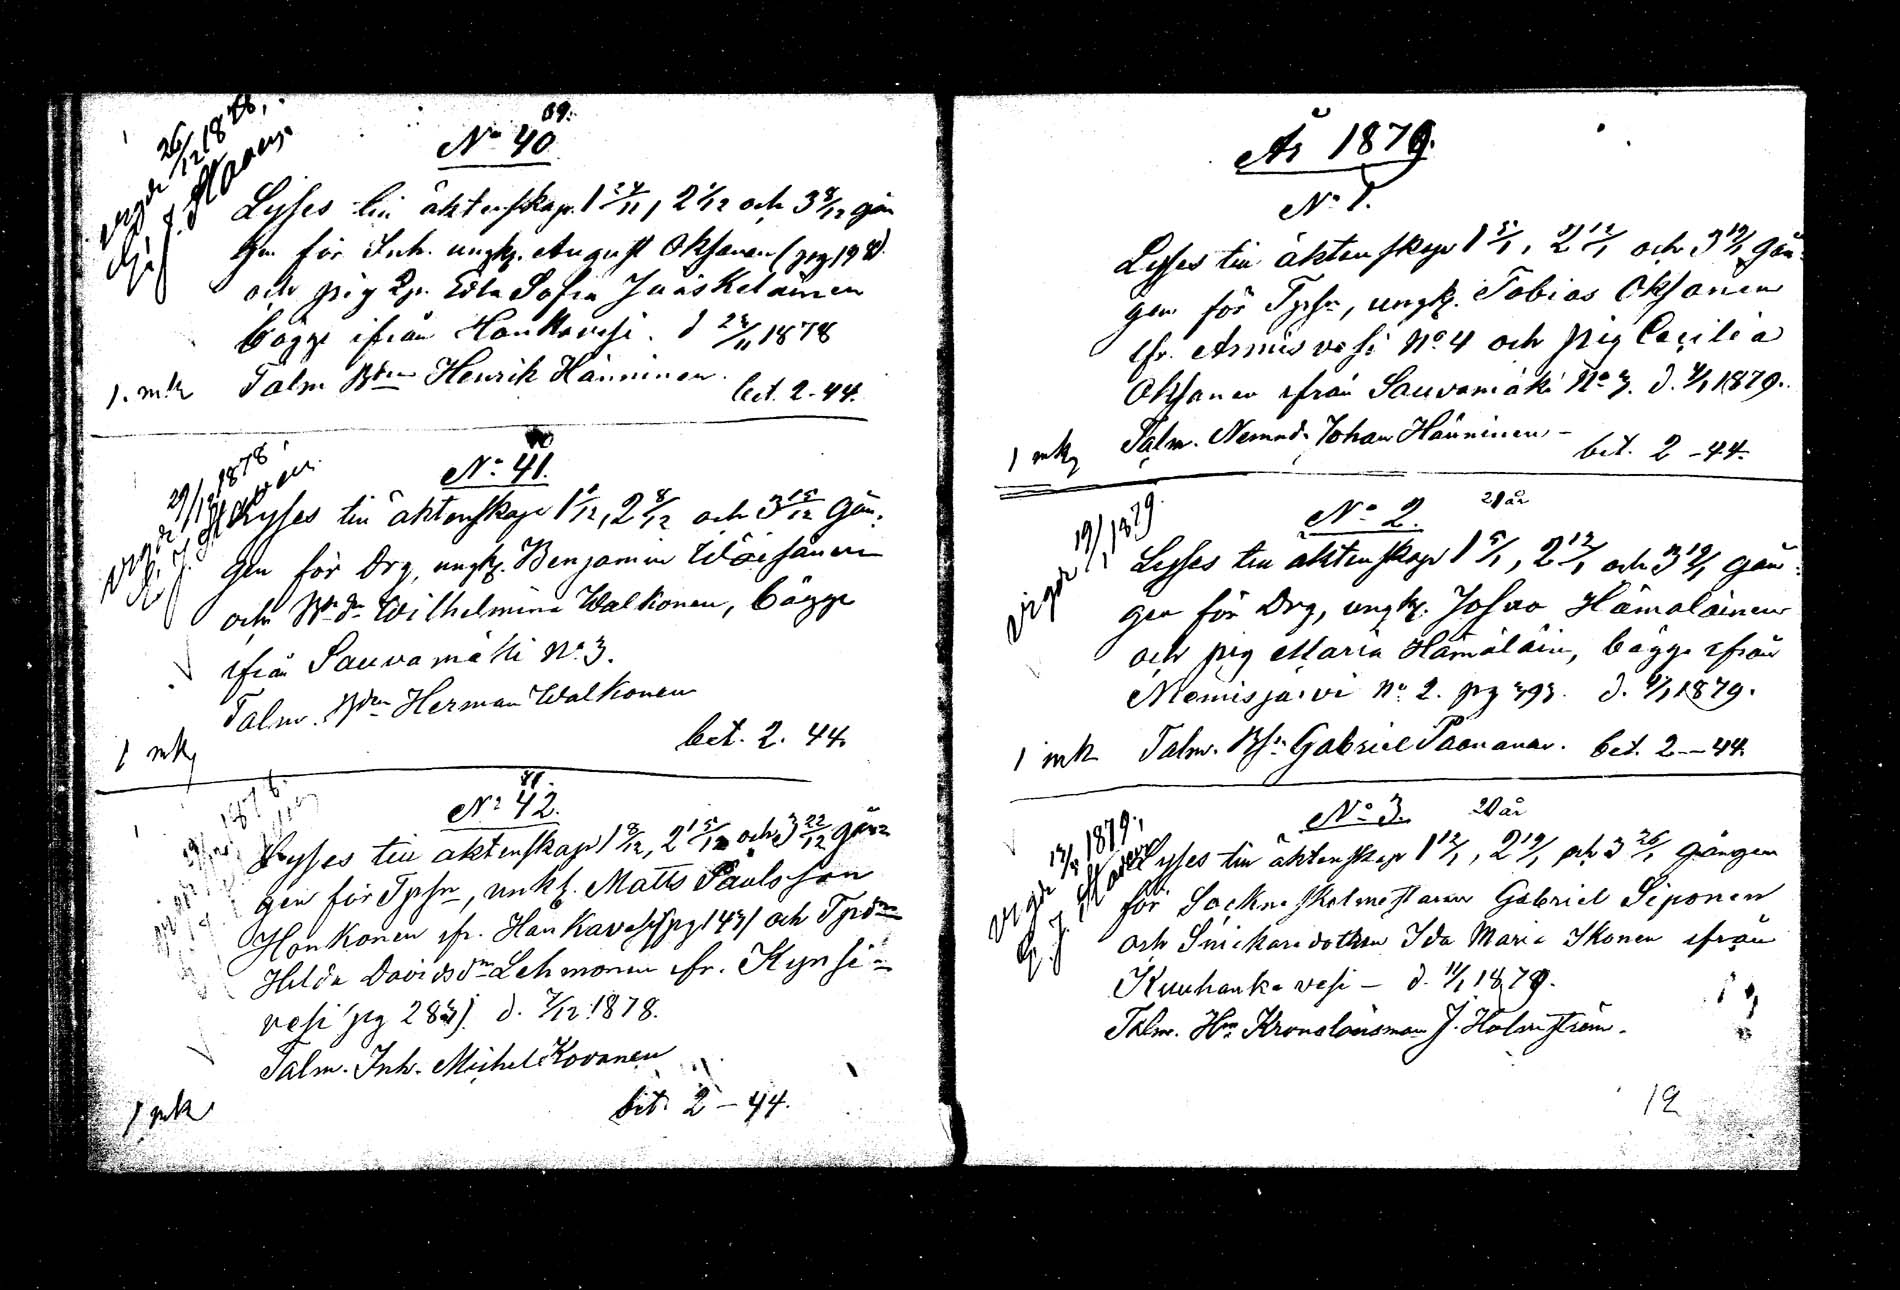 39.
No 40
26/12 1878.
Lyses till äktenskap 1 24/11, 2 1/12 och 3 8/12 gån
gen för Inh. ungk. August Oksanen (pg 198)
och pig Edla Sofia Jääskeläinen
bägge ifrån Hankavesi. d 23/11 1878
1. mk Talm Bden Henrik Hänninen. bet. 2-44.
40
No 41.
Vigde 29/12 1878
Lyses till äktenskap 1 1/12, 2 8/12 och 3 15/12 gån-
gen för Drg, ungk. Benjamin Wäisänen
och Bdr Wilhelmina Walkonen, bägge
ifrån Sauvamäki No 3.
Talm. Bden Herman Walkonen
1 mk bet. 2. 44.
41.
No 42.
Lyses till äktenskap 1 8/12, 2 15/12 och 3 22/12 gån-
gen för Tprsn, unkl. Matts Paulsson
Honkonen ifr. Hankavesi (pg 143) och Tprdr
Hilda Davidsdr Lehmonen ifr. Kynsi-
vesi (pg 283) d. 7/12 1878.
Talm. Inh. Michel Kovanen
1 mk bet. 2-44.
År 1879.
No 1.
Lyses till äktenskap 1 5/1, 2 12/1 och 3 19/1 gån-
gen för Tprsn, ungk. Tobias Oksanen
ifr. Armisvesi No 4 och pig Cecilia
Oksanen ifrån Sauvamäki No 3. d. 4/1 1879.
1 mk Talm. Nemnd. Johan Hänninen - bet. 2-44.
No 2. 21 år
Vigde 19/1 1879.
Lyses till äktenskap 1 5/1, 2 12/1 och 3 19/1 gån-
gen för Drg, ungk. Johan Hämäläinen
och pig Maria Hämäläin, bägge ifrån
Niemisjärvi No 2. pg 393. d. 4/1 1879.
1 mk Talm. Bsn Gabriel Paananen. bet. 2-44.
No 3. 20 år
Lyses till äktenskap 1 12/1, 2 19/1 och 3 26/1 gången
för Sockneskolmestaren Gabriel Siponen
och Snickaredottren Ida Maria Ikonen ifrån
Kuuhankavesi - d. 11/1 1879.
Talm. Hr Kronolänsman J. Holmström.
12